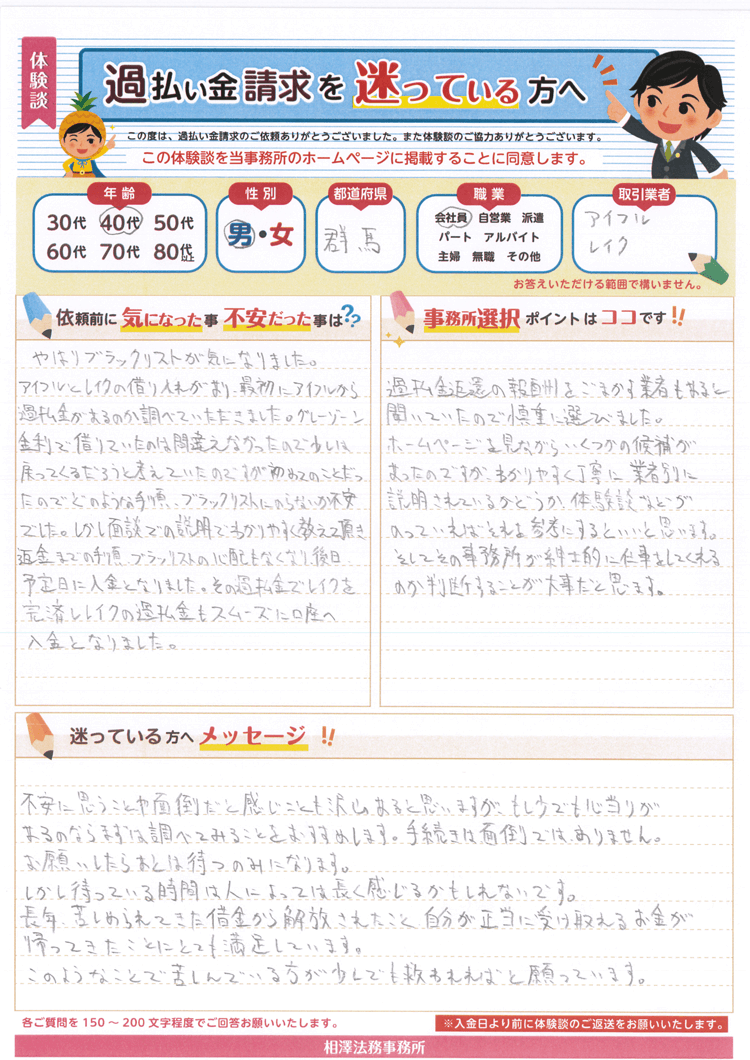 体験談
過払い金請求を迷っている方へ
この度は、過払い金請求のご依頼ありがとうございました。また体験談のご協力ありがとうございます。
この体験談を当事務所のホームページに掲載することに同意します。
年齢
30代 40代 50代
60代 70代 80代以上
性別
男・女
都道府県
群馬
職業
会社員 自営業 派遣
パート アルバイト
主婦 無職 その他
取引業者
アイフル
レイク
お答えいただける範囲で構いません。
依頼前に気になった事 不安だった事は??
やはりブラックリストが気になりました。
アイフルとレイクの借り入れがあり、最初にアイフルから
過払金があるのか調べていただきました。グレーゾーン
金利で借りていたのは間違えなかったので少しは
戻ってくるだろうと考えていたのですが初めてのことだっ
たのでどのような手順、ブラックリストにのらないか不安
でした。しかし面談での説明でわかりやすく教えて頂き
返金までの手順、ブラックリストの心配もなくなり、後日
予定日に入金となりました。その過払金でレイクを
完済しレイクの過払金もスムーズに口座へ
入金となりました。
事務所選択 ポイントはココです!!
過払金返還の報酬をごまかす業者もあると
聞いていたので慎重に選びました。
ホームページを見ながらいくつかの候補が
あったのですが、わかりやすく丁寧に業者別に
説明されているかどうか、体験談などが
のっていればそれを参考にするといいと思います。
そしてその事務所が紳士的に仕事をしてくれる
のか判断することが大事だと思ます。
迷っている方へメッセージ!!
不安に思うことや面倒だと感じことも沢山あると思いますが、もし少しでも心当りが
あるのならまずは調べてみることをおすすめします。手続きは面倒ではありません。
お願いしたらあとは待つのみになります。
しかし待っている時間は人によっては長く感じるかもしれないです。
長年、苦しめられてきた借金から解放されたこと、自分が正当に受け取れるお金が
帰ってきたことにとても満足しています。
このようなことで苦しんでいる方が少しでも救われればと願っています。
各ご質問を150～200文字程度でご回答お願いいたします。
※入金日より前に体験談のご返送をお願いいたします。
相澤法務事務所